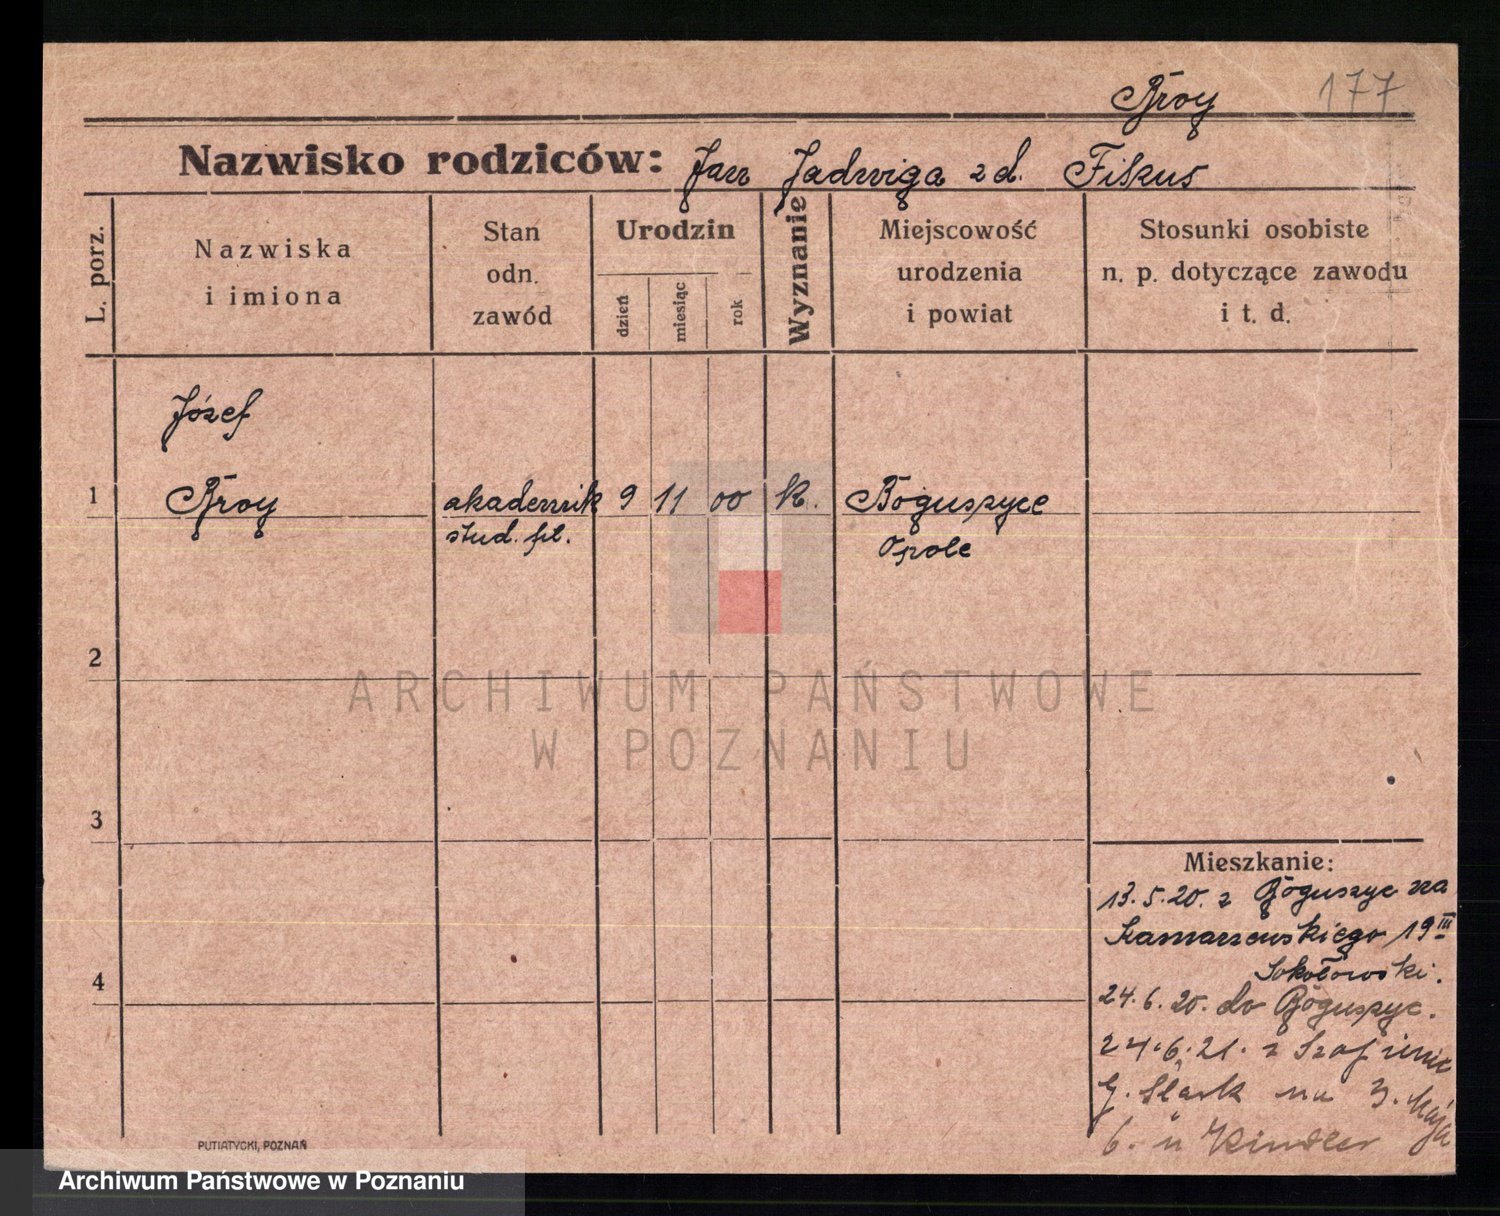 Broy 177
Nazwisko rodziców: Jan Jadwiga z d. Fikus
L. porz.
Nazwiska
i imiona
Stan
odn.
zawód
Urodzin
dzień
miesiąc
rok
Wyznanie
Miejscowość
urodzenia
i powiat
Stosunki osobiste
n. p. dotyczące zawodu
i t. d.
Józef
1 Broy akademik 9 11 00 k. Boguszyce
stud. fil. Opole
2
ARCHIWUM PAŃSTWOWE
W POZNANIU
3
Mieszkanie:
13.5.20. z Boguszyc na
Szamarzewskiego 19 III
Sokołowski.
4
24.6.20. do Boguszyc.
24.6.21. z Szopienic
G. Śląsk na 3. Maja
6. u Kindler
PUTIATYCKI, POZNAŃ
Archiwum Państwowe w Poznaniu